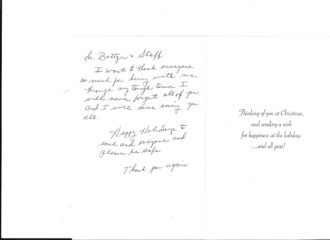 Dr. Bottger & Staff
I want to thank everyone
so much for being with me
through my tough times I
will never forget all of you
and I will miss seeing you
all
Happy Holidays to
each and everyone and
please be safe
Thank you again
Thinking of you at Christmas,
and sending a wish
for happiness at the holidays
...and all year!